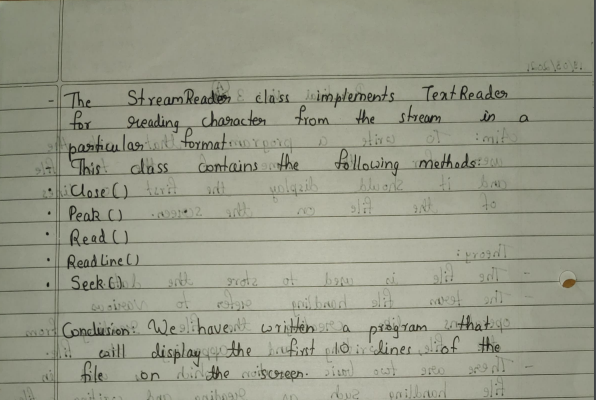 - The StreamReader class implements TextReader
for reading character from the stream in a
particular format.
This class contains the following methods:
• Close()
• Peak()
• Read()
• ReadLine()
• Seek()
Conclusion: We have written a program that
will display the first 10 lines of the
file on the screen.